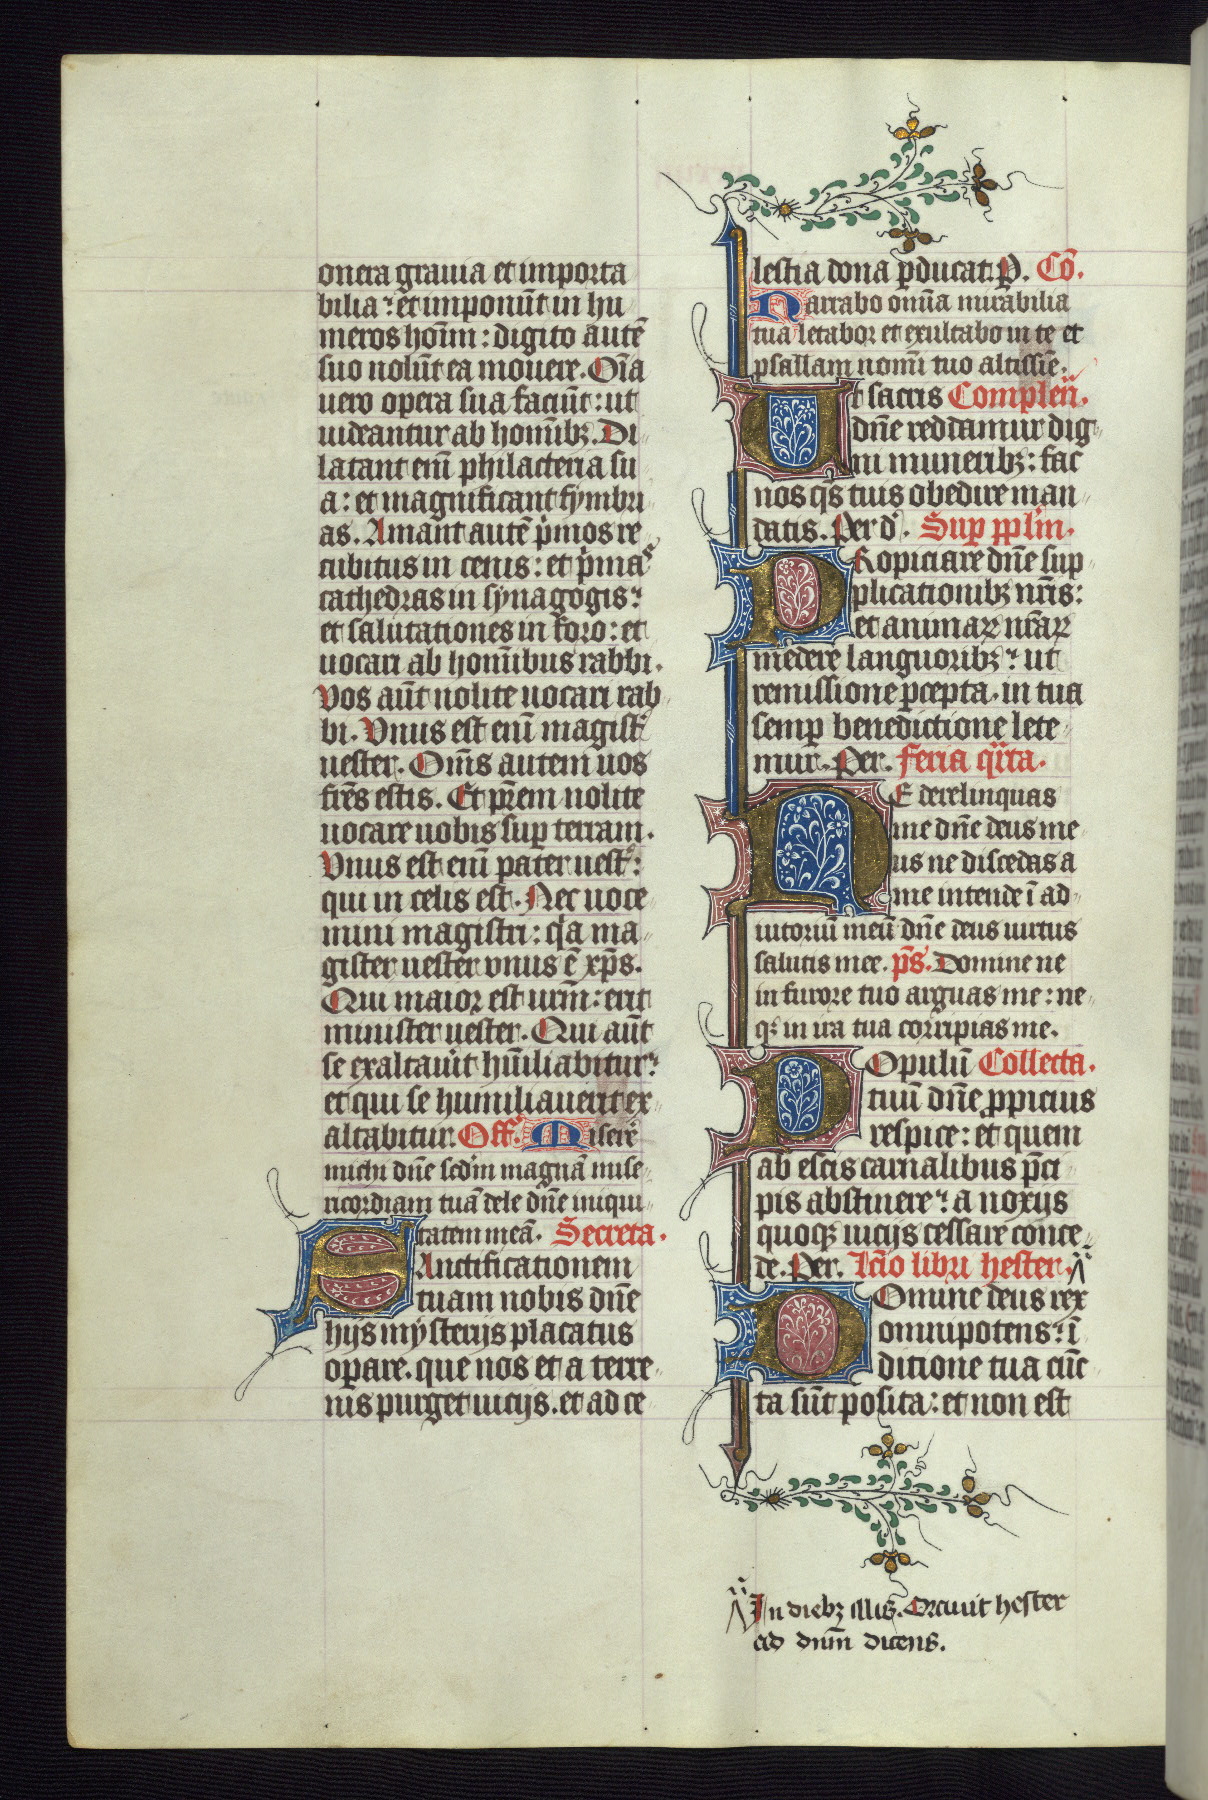 onera grauia et importa
bilia: et imponūt in hu
meros hoīm: digito autē
suo nolūt ea mouere. Oīa
uero opera sua faciūt: ut
uideantur ab hominibꝫ. Di
latant enī philacteria su
a: et magnificant fymbri
as. Amant autē p̄mos re
cubitus in cenis: et p̄mas
cathedras in synagogis:
et salutationes in foro: et
uocari ab hominibus rabbi.
Vos aūt nolite uocari rab
bi. Vnus est enī magist᷑
uester. Om̄s autem uos
fr̄es estis. Et pr̄em nolite
uocare uobis sup terram.
Vnus est enī pater uest᷑:
qui in celis est. Nec uoce
mini magistri: qͥa ma
gister uester vnus ē xp̄s.
Qui maior est ur̄m: erit
minister uester. Qui aūt
se exaltauit hūiliabitur:
et qui se humiliauerit ex
altabitur. Off. Miserē
michi dn̄e scd̄m magnā mise
ricordiam tuā dele dn̄e iniqui
tatem meā. Secreta.
SAnctificationem
tuam nobis dn̄e
hijs mysterijs placatus
oꝑare. que nos et a terre
nis purget uicijs. et ad ce
lestia dona ꝑducat. P. Cō.
Narrabo om̄ia mirabilia
tua letabor et exultabo in te et
psallam nomī tuo altissīe.
Ut sacris Complen̄.
dn̄e reddamur dig
ni muneribꝫ: fac
nos qs̄ tuis obedire man
datis. Per d. Sup pplīn.
PRopiciare dn̄e sup
plicationibꝫ nr̄is:
et animaꝝ nr̄aꝝ
medere languoribꝫ: ut
remissione ꝑcepta. in tua
semꝑ benedictione lete
mur. Per. Feria qͥrta.
NE derelinquas
me dn̄e deus me
us ne discedas a
me intende ī ad
iutoriū meū dn̄e deus uirtus
salutis mee. ps̄. Domine ne
in furore tuo arguas me: ne
qꝫ in ira tua corripias me.
POpulū Collecta.
tuū dn̄e ꝓpicius
respice: et quem
ab escis carnalibus p̄ci
pis abstinere: a noxijs
quoqꝫ uicijs cessare conce
de. Per. Lc̄io libri hester.
DOmine deus rex
omnipotens: ī
ditione tua cūc
ta sūt posita: et non est
In diebꝫ illis. Orauit hester
ad dn̄m dicens.